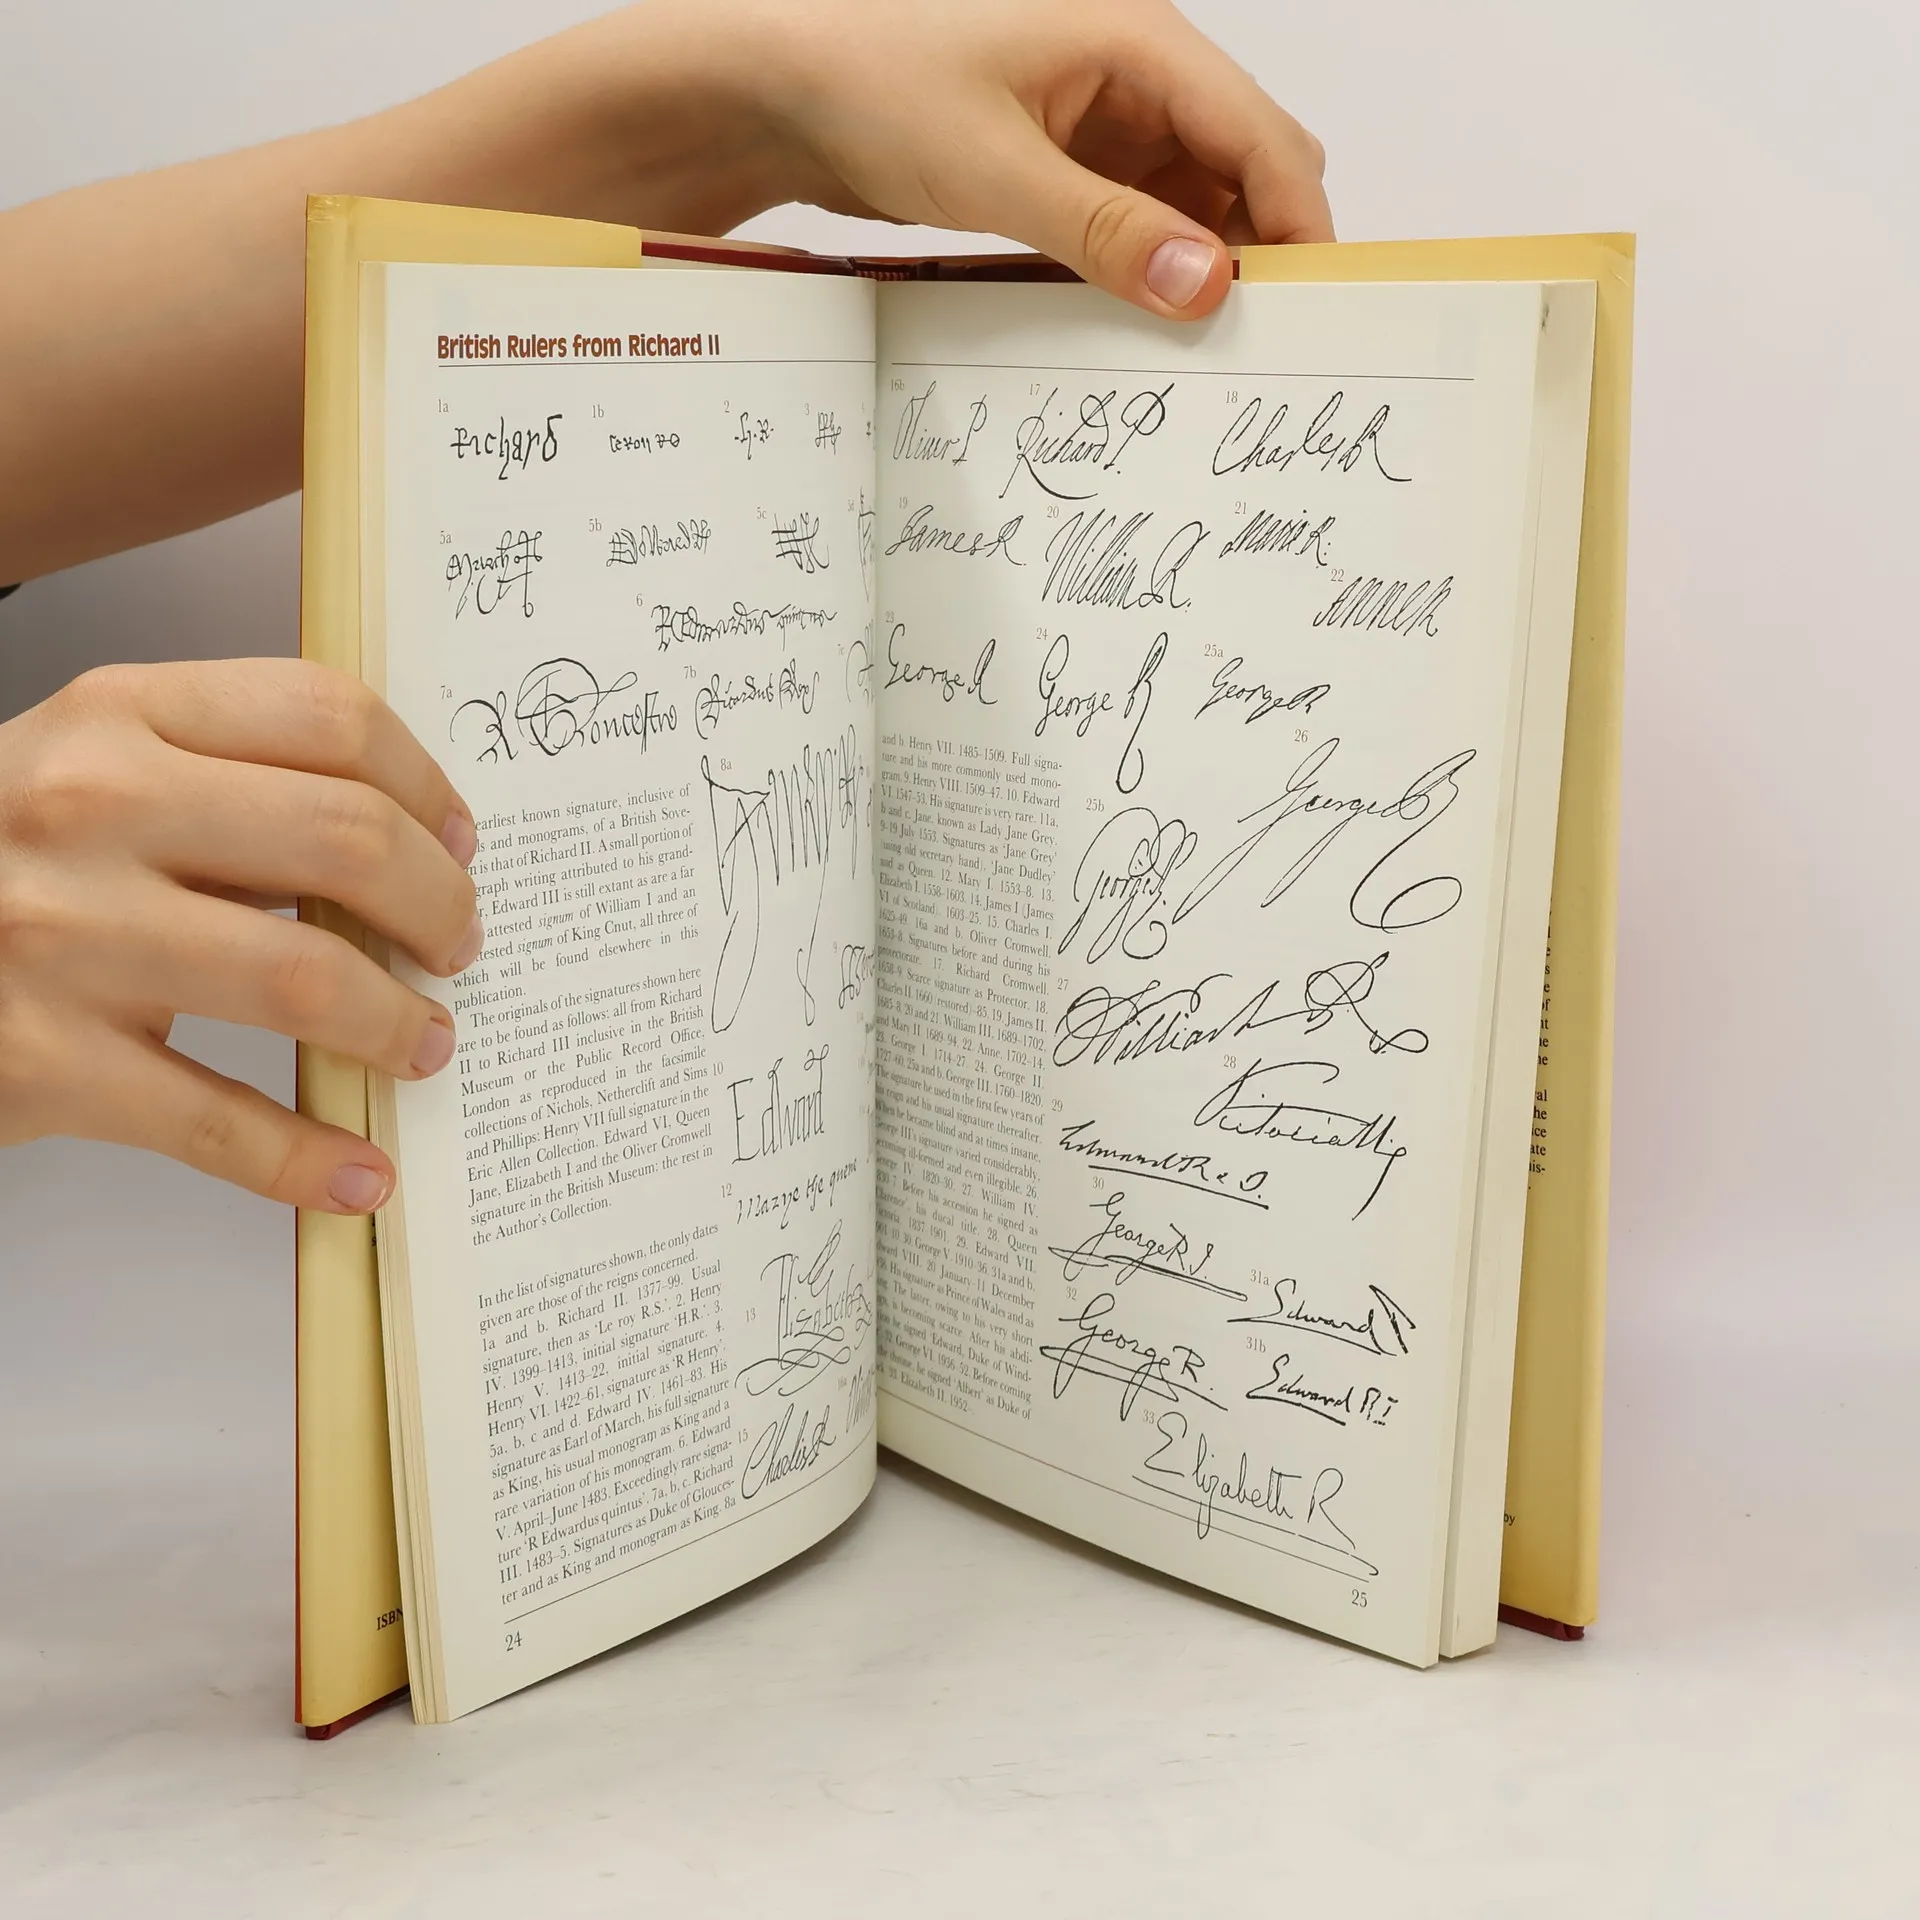 British Rulers from Richard II
1a
1b
2
3
Richard
5a
5b
5c
5d
6
7a
7b
7c
8a
earliest known signature, inclusive of
and monograms, of a British Sove-
is that of Richard II. A small portion of
graph writing attributed to his grand-
Edward III is still extant as are a far
attested signum of William I and an
signum of King Cnut, all three of
which will be found elsewhere in this
publication.
The originals of the signatures shown here
are to be found as follows: all from Richard
II to Richard III inclusive in the British
Museum or the Public Record Office,
London as reproduced in the facsimile
collections of Nichols, Netherclift and Sims
and Phillips: Henry VII full signature in the
Eric Allen Collection. Edward VI, Queen
Jane, Elizabeth I and the Oliver Cromwell
signature in the British Museum: the rest in
the Author's Collection.
In the list of signatures shown, the only dates
given are those of the reigns concerned.
1a and b. Richard II. 1377-99. Usual
signature, then as 'Le roy R.S.'. 2. Henry
IV. 1399-1413, initial signature 'H.R.'. 3.
Henry V. 1413-22, initial signature. 4.
Henry VI. 1422-61, signature as 'R Henry'.
5a, b, c and d. Edward IV. 1461-83. His
signature as Earl of March, his full signature
as King, his usual monogram as King and a
rare variation of his monogram. 6. Edward
V. April-June 1483. Exceedingly rare signa-
ture 'R Edwardus quintus'. 7a, b, c. Richard
III. 1483-5. Signatures as Duke of Glouces-
ter and as King and monogram as King. 8a
9
10
Edward
12
Marye the quene
13
Elizabeth
15
Charles R
16a
24
16b
17
18
Oliver P
Richard P.
Charles R
19
20
21
James R
William R.
Marie R.
22
Anne R
23
24
25a
George R
George R
George R
26
George R
25b
George R
and b. Henry VII. 1485-1509. Full signa-
ture and his more commonly used mono-
gram. 9. Henry VIII. 1509-47. 10. Edward
VI. 1547-53. His signature is very rare. 11a,
b and c. Jane, known as Lady Jane Grey.
9-19 July 1553. Signatures as 'Jane Grey'
(using old secretary hand), 'Jane Dudley'
and as Queen. 12. Mary I. 1553-8. 13.
Elizabeth I. 1558-1603. 14. James I (James
VI of Scotland). 1603-25. 15. Charles I.
1625-49. 16a and b. Oliver Cromwell.
1653-8. Signatures before and during his
protectorate. 17. Richard Cromwell.
1658-9. Scarce signature as Protector. 18.
Charles II. 1660 (restored)-85. 19. James II.
1685-8. 20 and 21. William III. 1689-1702.
and Mary II. 1689-94. 22. Anne. 1702-14.
23. George I. 1714-27. 24. George II.
1727-60. 25a and b. George III. 1760-1820.
The signature he used in the first few years of
his reign and his usual signature thereafter.
When he became blind and at times insane,
George III's signature varied considerably,
becoming ill-formed and even illegible. 26.
George IV. 1820-30. 27. William IV.
1830-7. Before his accession he signed as
'Clarence', his ducal title. 28. Queen
Victoria. 1837-1901. 29. Edward VII.
1901-10. 30. George V. 1910-36. 31a and b.
Edward VIII. 20 January-11 December
1936. His signature as Prince of Wales and as
King. The latter, owing to his very short
reign, is becoming scarce. After his abdi-
cation he signed 'Edward, Duke of Wind-
32. George VI. 1936-52. Before coming
the throne, he signed 'Albert' as Duke of
33. Elizabeth II. 1952-
27
William R.
28
Victoria
29
30
George R. I.
31a
Edward P
32
George R.
31b
Edward R I
33
Elizabeth R
25
ISBN
by